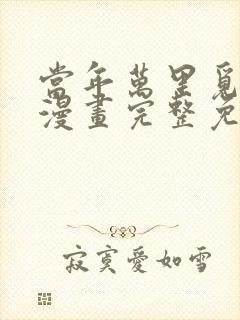 當年萬里覓
漫畫完整免
寂寞愛如雪